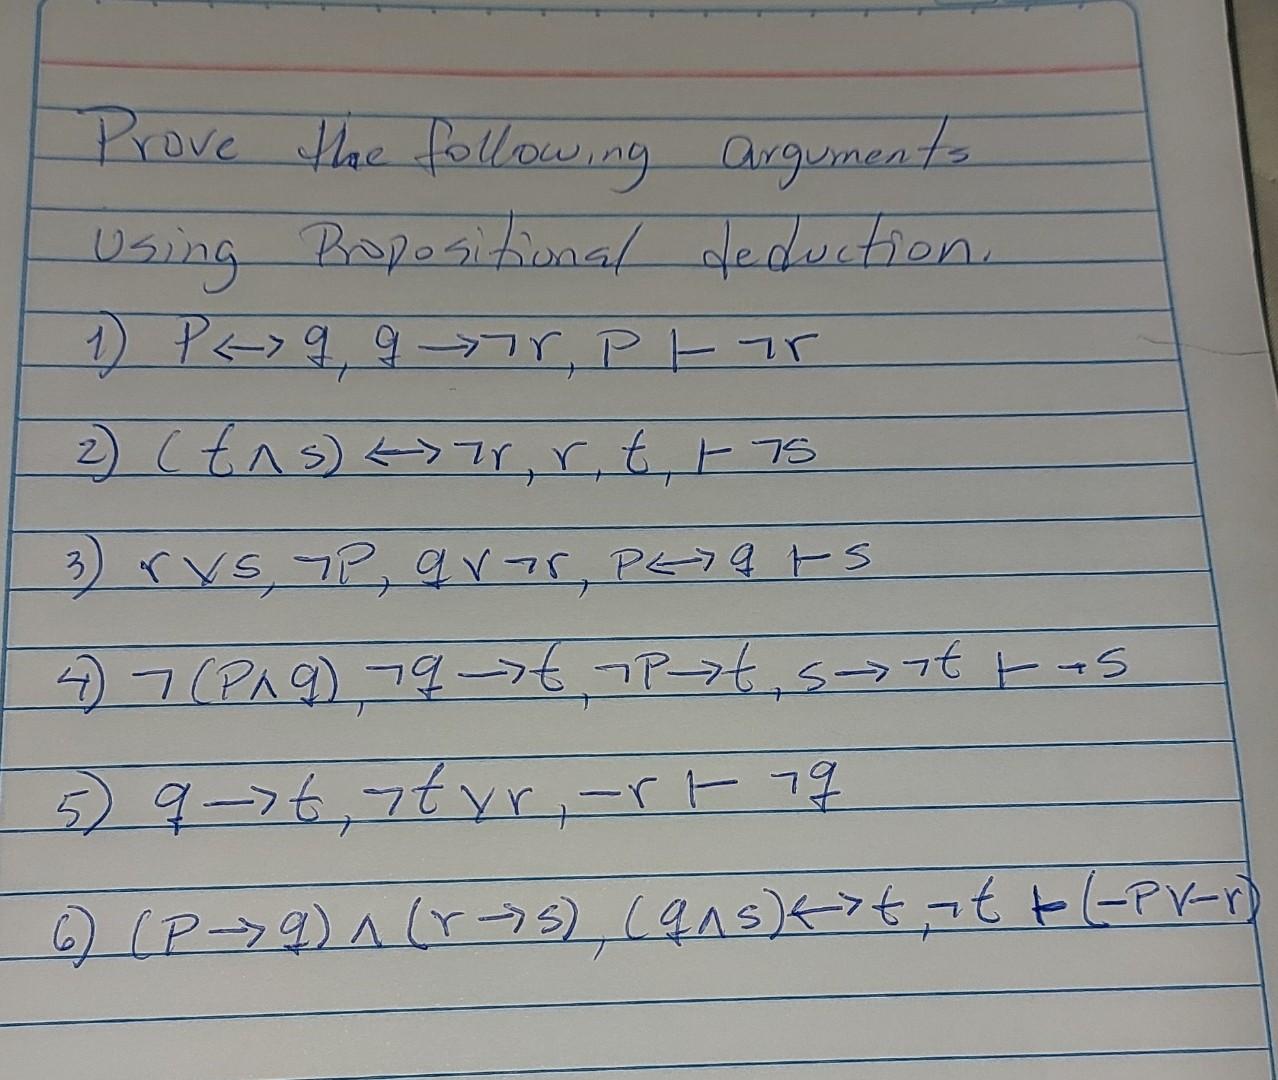 Prove the following arguments
Using Propositional deduction.
1) P↔q, q→¬r, P ⊢ ¬r
2) (t∧s)↔¬r, r, t, ⊢ ¬s
3) r∨s, ¬P, q∨¬r, P↔q ⊢ s
4) ¬(P∧q), ¬q→t, ¬P→t, s→¬t ⊢ ¬s
5) q→t, ¬t∨r, -r ⊢ ¬q
6) (P→q)∧(r→s), (q∧s)↔t, ¬t ⊢ (-P∨-r)